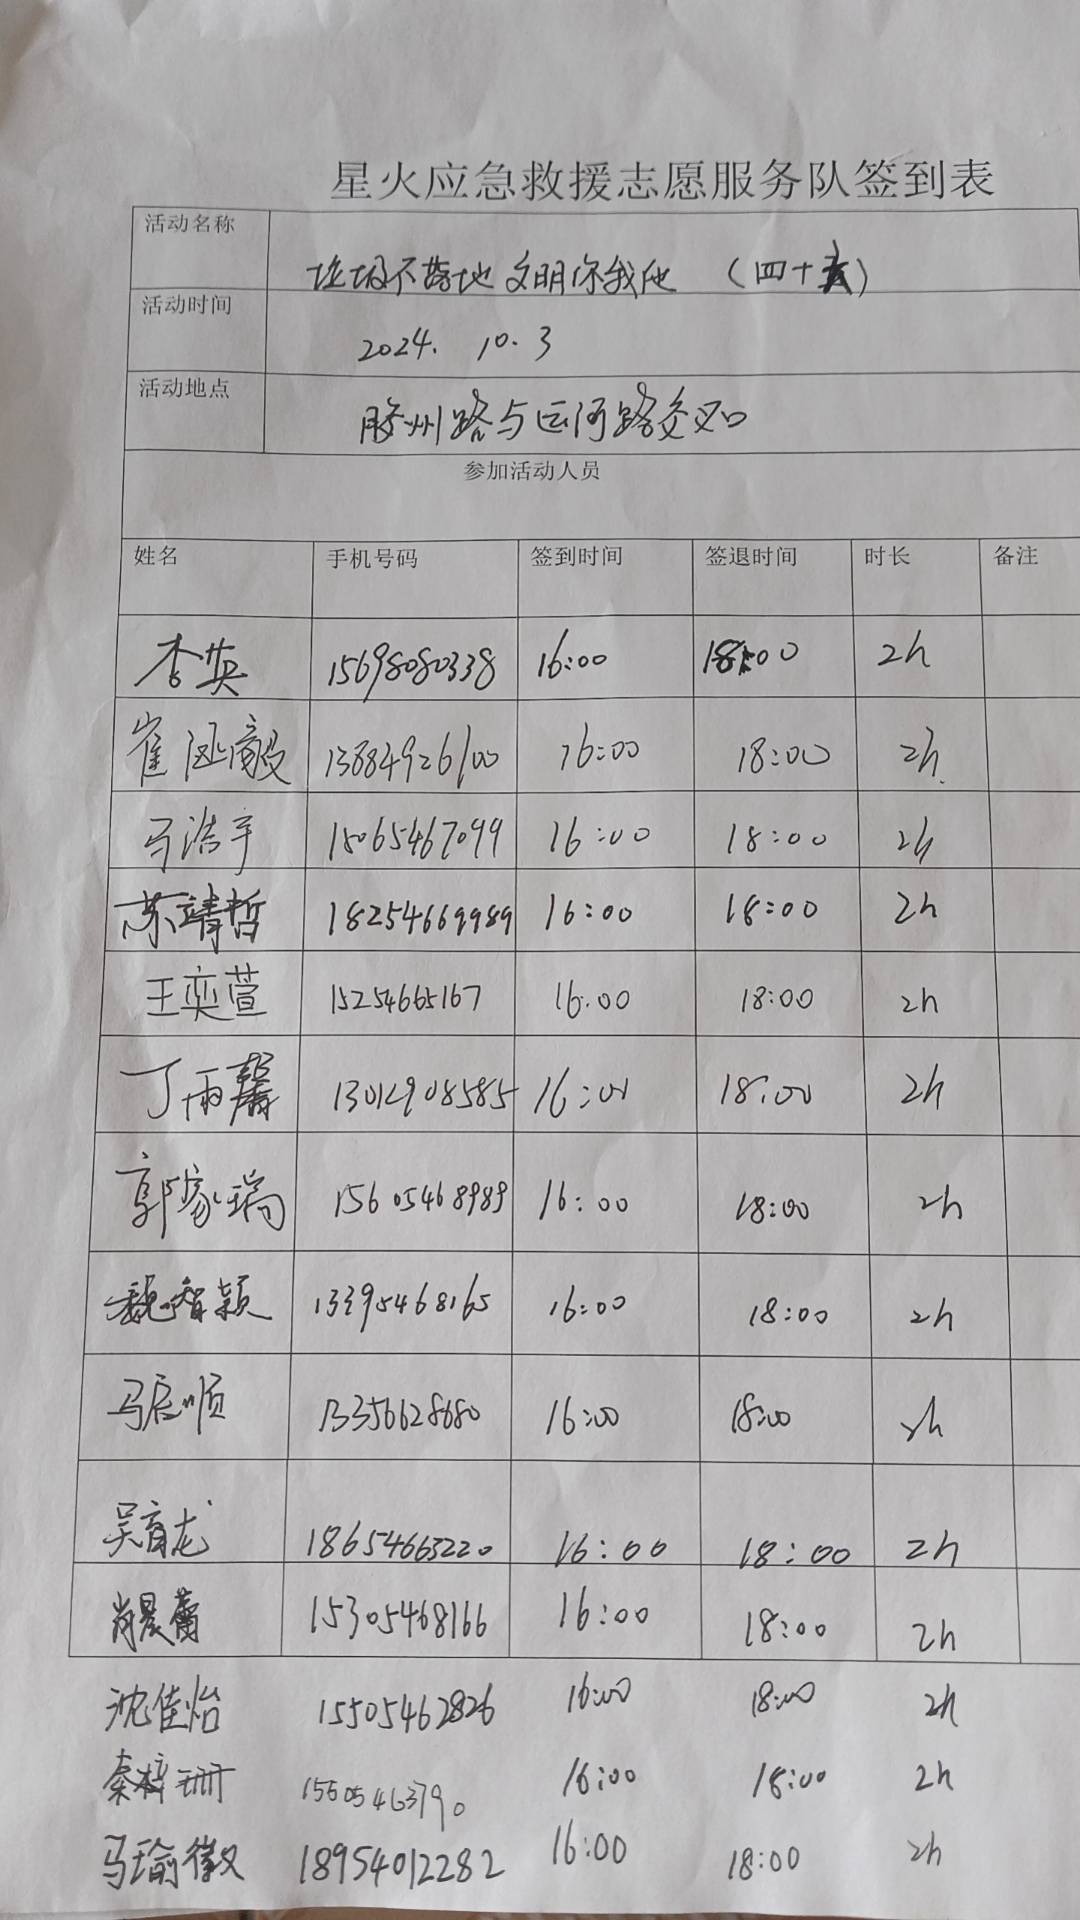 星火应急救援志愿服务队签到表
活动名称 垃圾不落地 文明你我他 （四十五）
活动时间 2024. 10. 3
活动地点 胶州路与运河路交叉口
参加活动人员
姓名 手机号码 签到时间 签退时间 时长 备注
李英 15698080338 16:00 18:00 2h
崔 13884926100 16:00 18:00 2h
马浩宇 15065467099 16:00 18:00 2h
苏靖哲 18254669989 16:00 18:00 2h
王奕萱 15254665167 16:00 18:00 2h
丁雨馨 13012908585 16:00 18:00 2h
郭家瑞 15605468989 16:00 18:00 2h
魏智颖 13395468165 16:00 18:00 2h
马辰顺 13356628680 16:00 18:00 2h
吴育龙 18654663220 16:00 18:00 2h
肖晨蕾 15305468166 16:00 18:00 2h
沈佳怡 15505462826 16:00 18:00 2h
秦梓珊 15605463790 16:00 18:00 2h
马瑜徽 18954012282 16:00 18:00 2h